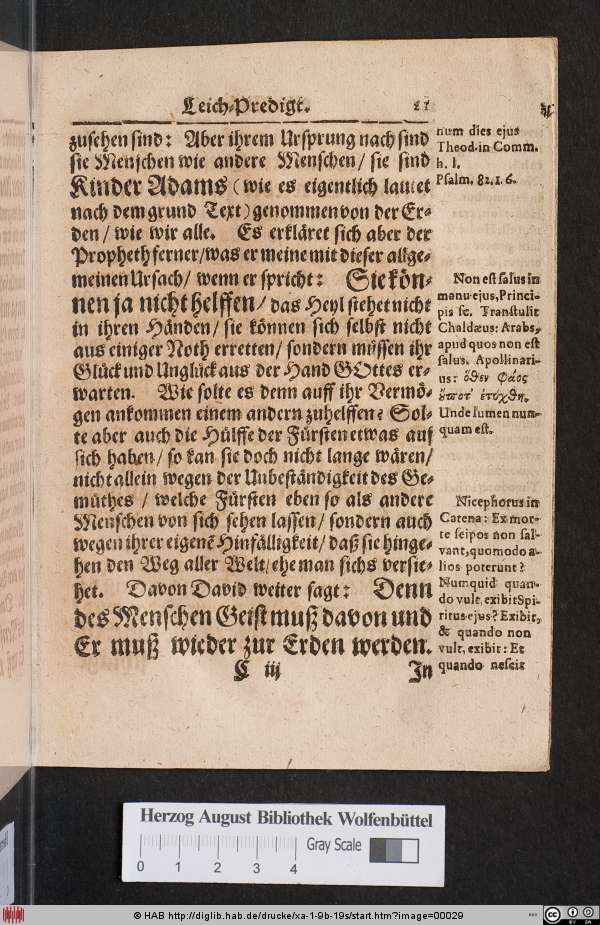 Leich-Predigt. 21
zusehen sind: Aber ihrem Ursprung nach sind
sie Menschen wie andere Menschen/ sie sind
Kinder Adams (wie es eigentlich lautet
nach dem grund Text) genommen von der Er-
den/ wie wir alle. Es erkläret sich aber der
Propheth ferner/ was er meine mit dieser allge-
meinen Ursach/ wenn er spricht: Sie kön-
nen ja nicht helffen/ das Heyl stehet nicht
in ihren Händen/ sie können sich selbst nicht
aus einiger Noth erretten/ sondern müssen ihr
Glück und Unglück aus der Hand GOttes er-
warten. Wie solte es denn auff ihr Vermö-
gen ankommen einem andern zuhelffen? Sol-
te aber auch die Hülffe der Fürsten etwas auf
sich haben/ so kan sie doch nicht lange wären/
nicht allein wegen der Unbeständigkeit des Ge-
müthes / welche Fürsten eben so als andere
Menschen von sich sehen lassen/ sondern auch
wegen ihrer eigenē Hinfälligkeit/ daß sie hinge-
hen den Weg aller Welt/ ehe man sichs versie-
het. Davon David weiter sagt: Denn
des Menschen Geist muß davon und
Er muß wieder zur Erden werden.
C iij In
num dies ejus
Theod. in Comm.
h. l.
Psalm. 82. 1. 6.
Non est salus in
manu ejus, Princi-
pis sc. Transtulit
Chaldæus: Arabs,
apud quos non est
salus. Apollinari-
us: ὅθεν φάος
οὔποτ' ἐτύχθη.
Unde lumen nun-
quam est.
Nicephorus in
Catena: Ex mor-
te seipos non sal-
vant, quomodo a-
lios poterunt?
Numquid quan-
do vult, exibit Spi-
ritus ejus? Exibit,
& quando non
vult, exibit: Et
quando nescit
Herzog August Bibliothek Wolfenbüttel
0 1 2 3 4
Gray Scale
© HAB http://diglib.hab.de/drucke/xa-1-9b-19s/start.htm?image=00029